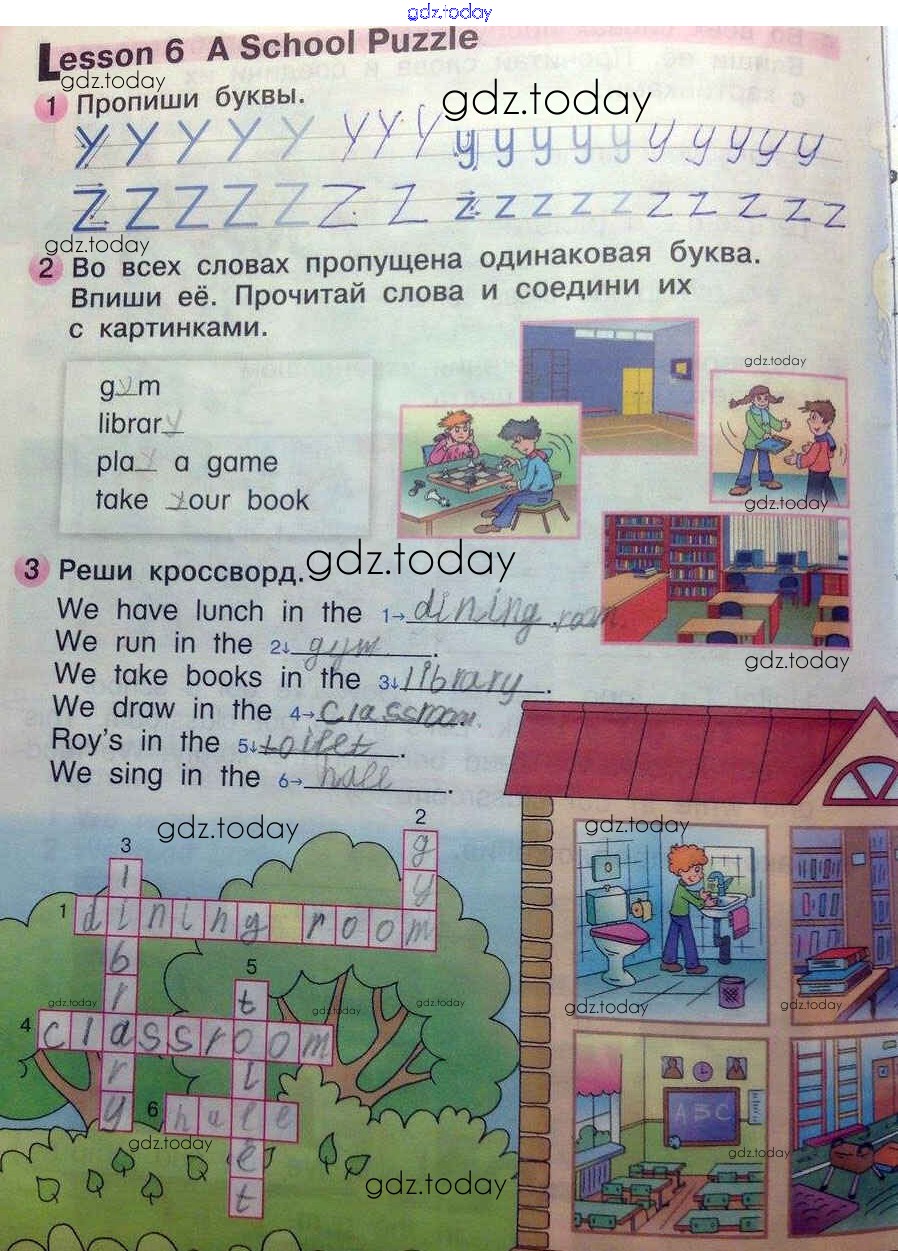 gdz.today
Lesson 6 A School Puzzle
gdz.today
1 Пропиши буквы.
gdz.today
Y Y Y Y Y Y Y Y y y y y y y y y y y
Z Z Z Z Z Z Z z z z z z z z z z
gdz.today
2 Во всех словах пропущена одинаковая буква.
Впиши её. Прочитай слова и соедини их
с картинками.
gdz.today
gym
library
play a game
take your book
gdz.today
3 Реши кроссворд.
gdz.today
We have lunch in the 1→ dining room.
We run in the 2↓ gym.
We take books in the 3↓ library.
gdz.today
We draw in the 4→ classroom.
Roy's in the 5↓ toilet.
We sing in the 6→ hale.
gdz.today
gdz.today
2
3
g
l
y
1 dining room
b
5
r
t
gdz.today
gdz.today
gdz.today
gdz.today
gdz.today
4 classroom
r
l
ABC
y
6 hale
gdz.today
gdz.today
e
gdz.today
t